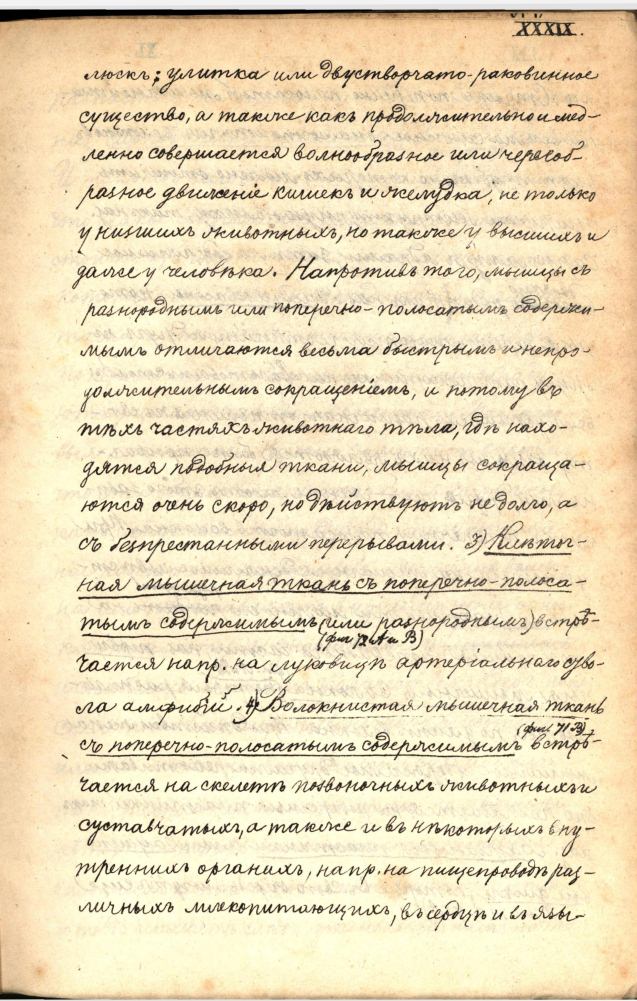 XXXIX.
люскъ; улитка или двустворчато-раковинное
существо, а также какъ продолжительно и мед-
ленно совершается волнообразное или червеоб-
разное движеніе кишекъ и желудка, не только
у низшихъ животныхъ, но также у высшихъ и
даже у человѣка. Напротивъ того, мышцы съ
разнороднымъ или поперечно-полосатымъ содержи-
мымъ отличаются весьма быстрымъ и непро-
должительнымъ сокращеніемъ, и потому въ
тѣхъ частяхъ животнаго тѣла, гдѣ нахо-
дятся подобныя ткани, мышцы сокраща-
ются очень скоро, но дѣйствуютъ не долго, а
съ безпрестанными перерывами. 3) Клѣточ-
ная мышечная ткань съ поперечно-полоса-
тымъ содержимымъ (или разнороднымъ) встрѣ-
(фиг 72 А и В)
чается напр. на луковицѣ артеріальнаго ство-
ла амфибій. 4) Волокнистая мышечная ткань
(фиг 71 В)
съ поперечно-полосатымъ содержимымъ встрѣ-
чается на скелетѣ позвоночныхъ животныхъ и
суставчатыхъ, а также и въ нѣкоторыхъ вну-
треннихъ органахъ, напр. на пищепроводѣ раз-
личныхъ млекопитающихъ, въ сердцѣ и въ язы-